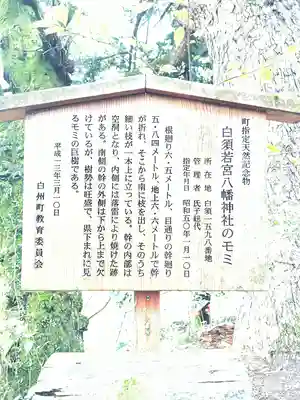 町指定天然記念物
白須若宮八幡神社のモミ
所在地 白須一五九八番地
管理者 氏子総代
指定年月日 昭和五〇年一月一〇日
根廻り六・五メートル、目通りの幹廻り
五・八四メートル、地上六・六メートルで幹
が折れ、そこから南に枝を出し、そのうち
細い枝が一本上に立っている。幹の内部は
空洞となり、内側には落雷により焼けた跡
がある。南側の幹の外側は下から上まで欠
けているが、樹勢は旺盛で、県下まれに見
るモミの巨樹である。
平成一三年三月一〇日
白州町教育委員会